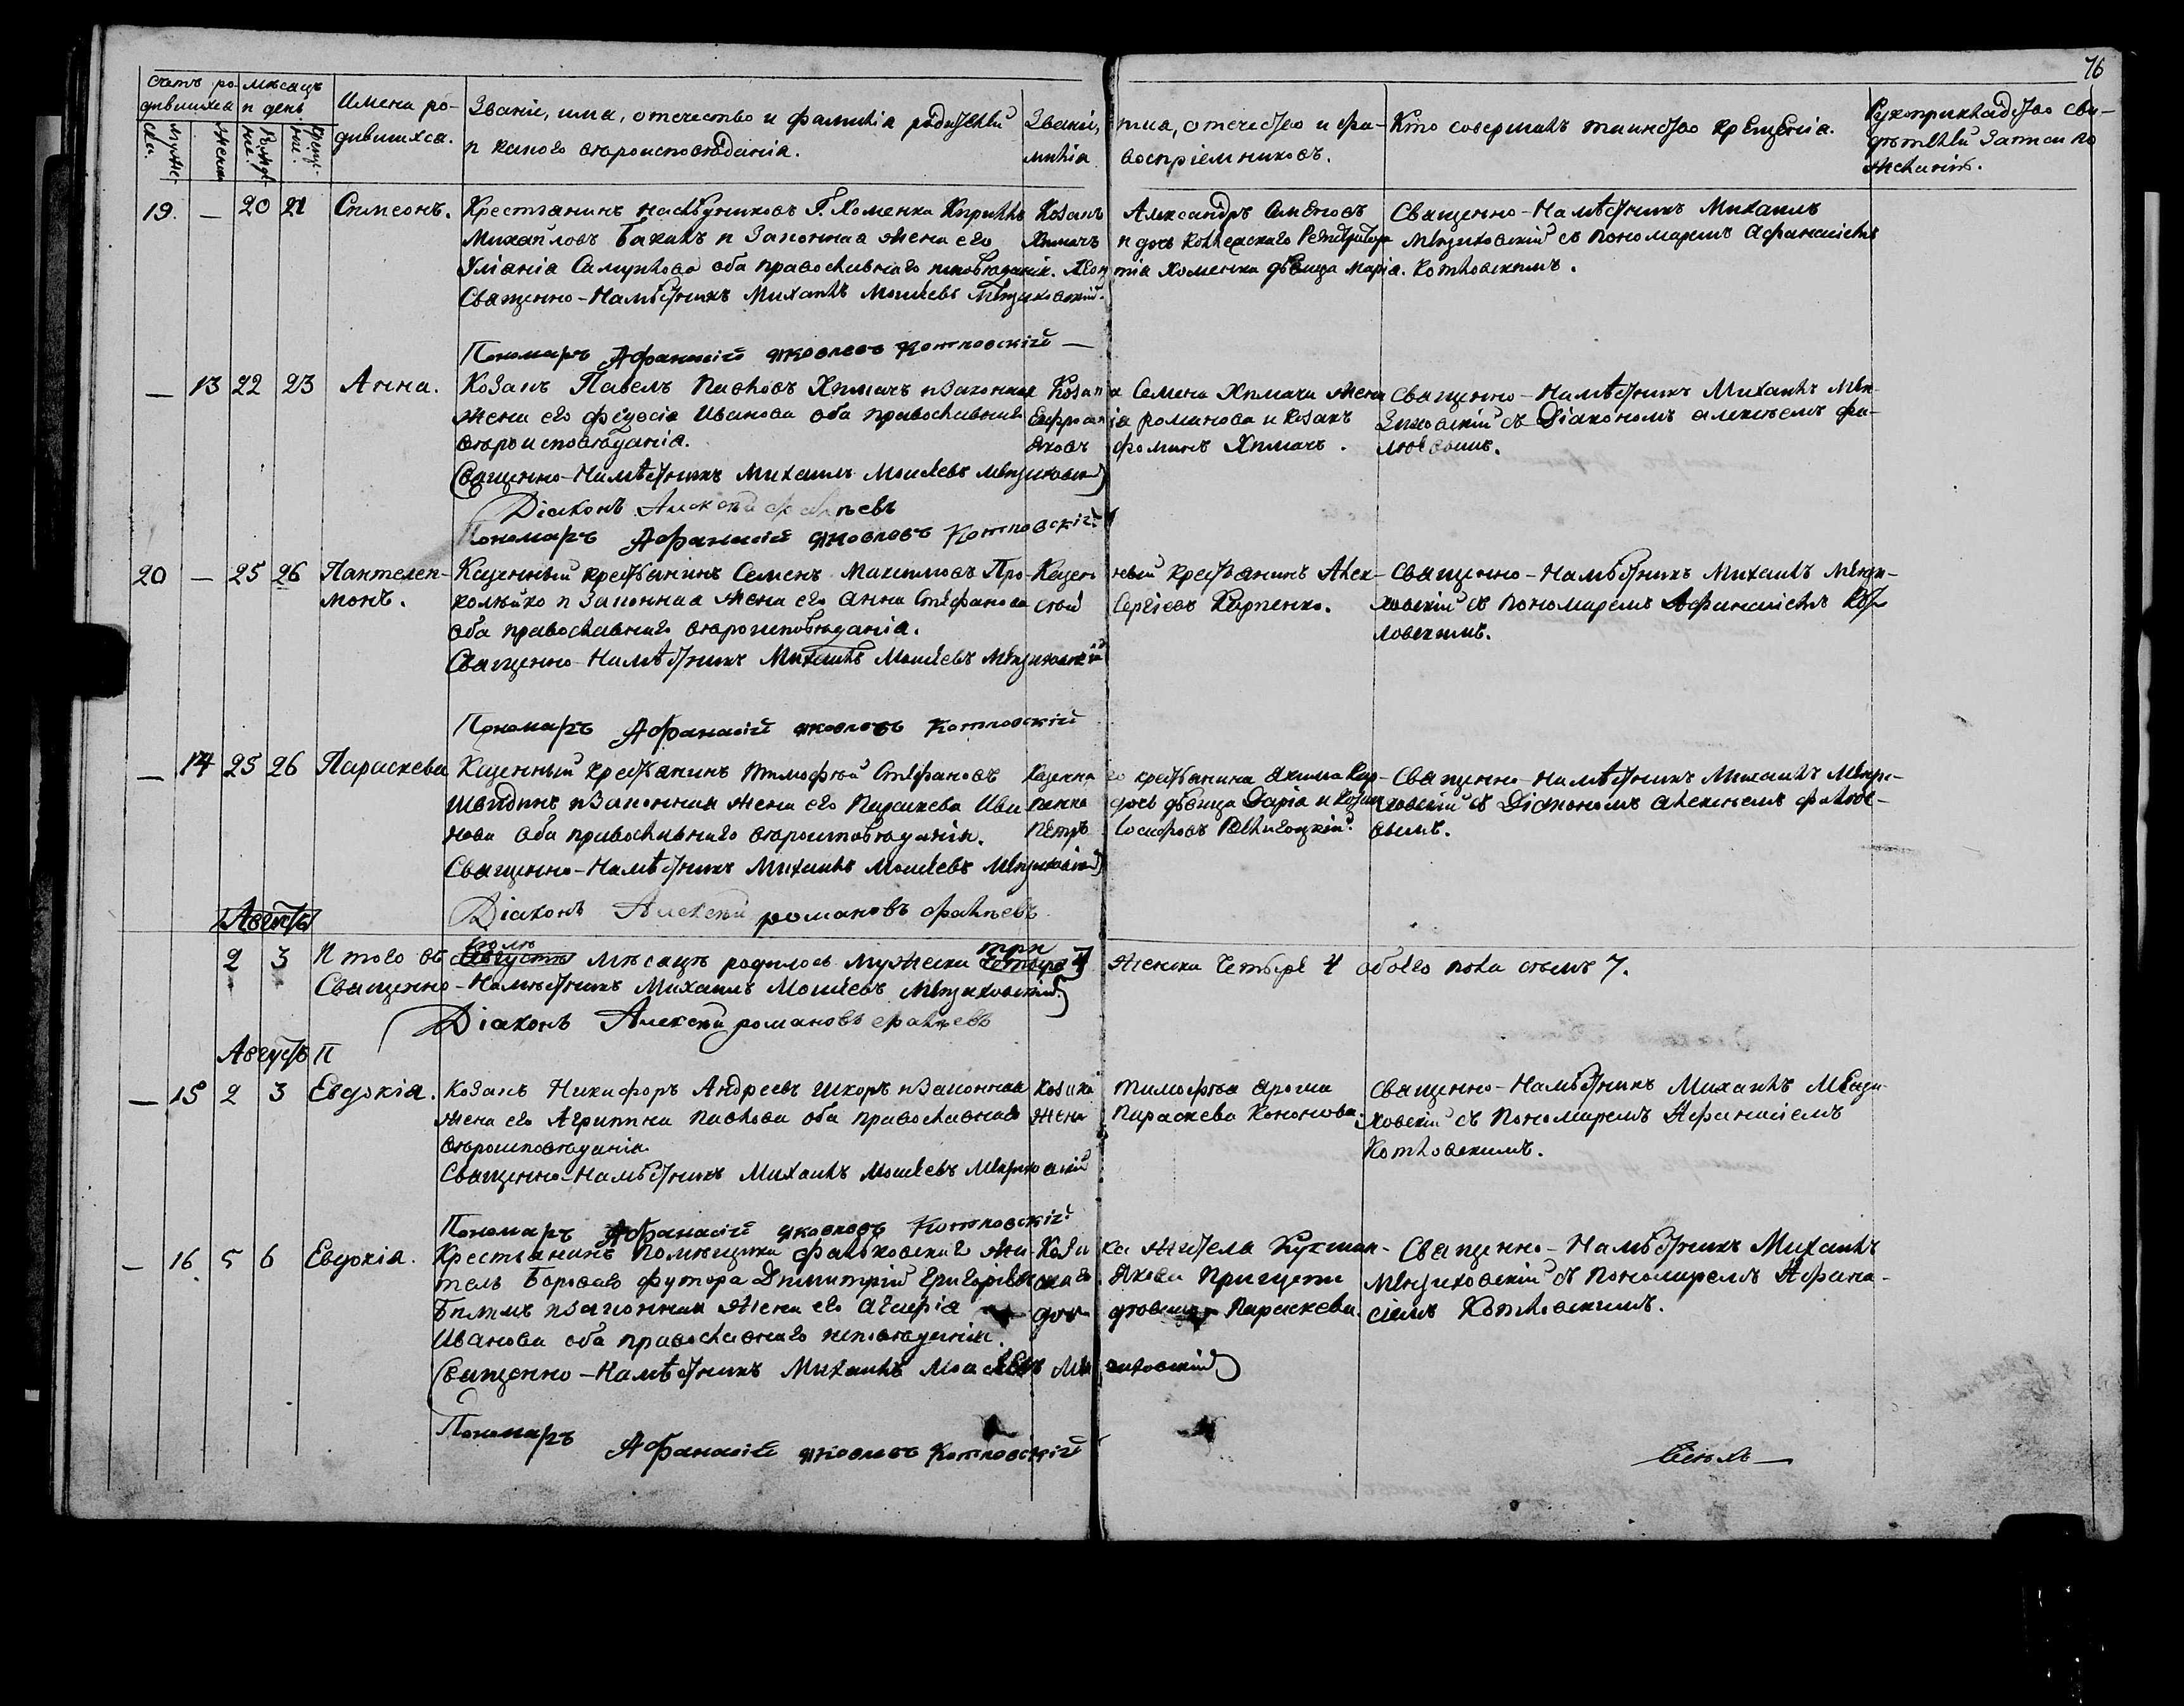 76
Счетъ ро-
дившихся
Мѣсяцъ
и день
Имена ро-
дившихся.
Званіе, имя, отечество и фамилія родителей
и какого вѣроисповѣданія.
Званіе, имя, отечество и фа-
милія воспріемниковъ.
Кто совершалъ таинство крещенія.
Рукоприкладство сви-
дѣтелей записи по
желанію.
19. — 20 21 Симеонъ.
Крестьянинъ наслѣдниковъ Г. Хоменка Кириллъ
Михайловъ и законная жена его
Уліанія Самуилова оба православнаго исповѣданія.
Священно-Намѣстникъ Михаилъ Моисеевъ
Пономарь Афанасій Яковлевъ Котловскій —
Козакъ Александръ Семеновъ
Химачъ и дочь коллежскаго Регистратора
Хоменка дѣвица Марія.
Священно-Намѣстникъ Михаилъ
съ пономаремъ Афанасіемъ
Котловскимъ.
— 13 22 23 Анна.
Козакъ Павелъ Павловъ Химачъ и законная
жена его Феодосія Иванова оба православнаго
вѣроисповѣданія.
Священно-Намѣстникъ Михаилъ Моисеевъ
Діаконъ Алексѣй
Пономарь Афанасій Яковлевъ Котловскій
Козака Семена Химача жена
Евфросинія Романова и козакъ
Яковъ Фоминъ Химачъ.
Священно-Намѣстникъ Михаилъ
съ Діакономъ Алексѣемъ
20 — 25 26 Пантелеи-
монъ.
Казенный крестьянинъ Семенъ Максимовъ Про-
копѣйко и законная жена его Анна Стефанова
оба православнаго вѣроисповѣданія.
Священно-Намѣстникъ Михаилъ Моисеевъ
Пономарь Афанасій Яковлевъ Котловскій
Казенный крестьянинъ Алек-
сѣй Сергіевъ Карпенко.
Священно-Намѣстникъ Михаилъ
съ пономаремъ Афанасіемъ Кот-
ловскимъ.
— 14 25 26 Параскева
Казенный крестьянинъ Тимофѣй Стефановъ
и законная жена его Параскева Ива-
нова оба православнаго вѣроисповѣданія.
Священно-Намѣстникъ Михаилъ Моисеевъ
Діаконъ Алексѣй Романовъ
Казеннаго крестьянина Якима Кар-
пенка дочь дѣвица Дарія и козакъ
Петръ Іосифовъ
Священно-Намѣстникъ Михаилъ
съ Діакономъ Алексѣемъ
Августъ
2 3 Итого въ Августѣ Іюлѣ мѣсяцѣ родилось мужеска четыре три женска четыре 4 обоего пола семь 7.
Священно-Намѣстникъ Михаилъ Моисеевъ
Діаконъ Алексѣй Романовъ
Августъ
— 15 2 3 Евдокія.
Козакъ Никифоръ Андреевъ Шкоръ и законная
жена его Агрипина Павлова оба православнаго
вѣроисповѣданія.
Священно-Намѣстникъ Михаилъ Моисеевъ
Пономарь Афанасій Яковлевъ Котловскій
Козака Тимофѣя
жена Параскева Кононова.
Священно-Намѣстникъ Михаилъ
съ Пономаремъ Афанасіемъ
Котловскимъ.
— 16 5 6 Евдокія.
Крестьянинъ помѣщика жи-
тель Бороваго футора Димитрій Григоріевъ
и законная жена его Агафія
Иванова оба православнаго исповѣданія.
Священно-Намѣстникъ Михаилъ Моисеевъ
Пономарь Афанасій Яковлевъ Котловскій
Козака жителя
Якова
Параскева.
Священно-Намѣстникъ Михаилъ
съ пономаремъ Афана-
сіемъ Котловскимъ.